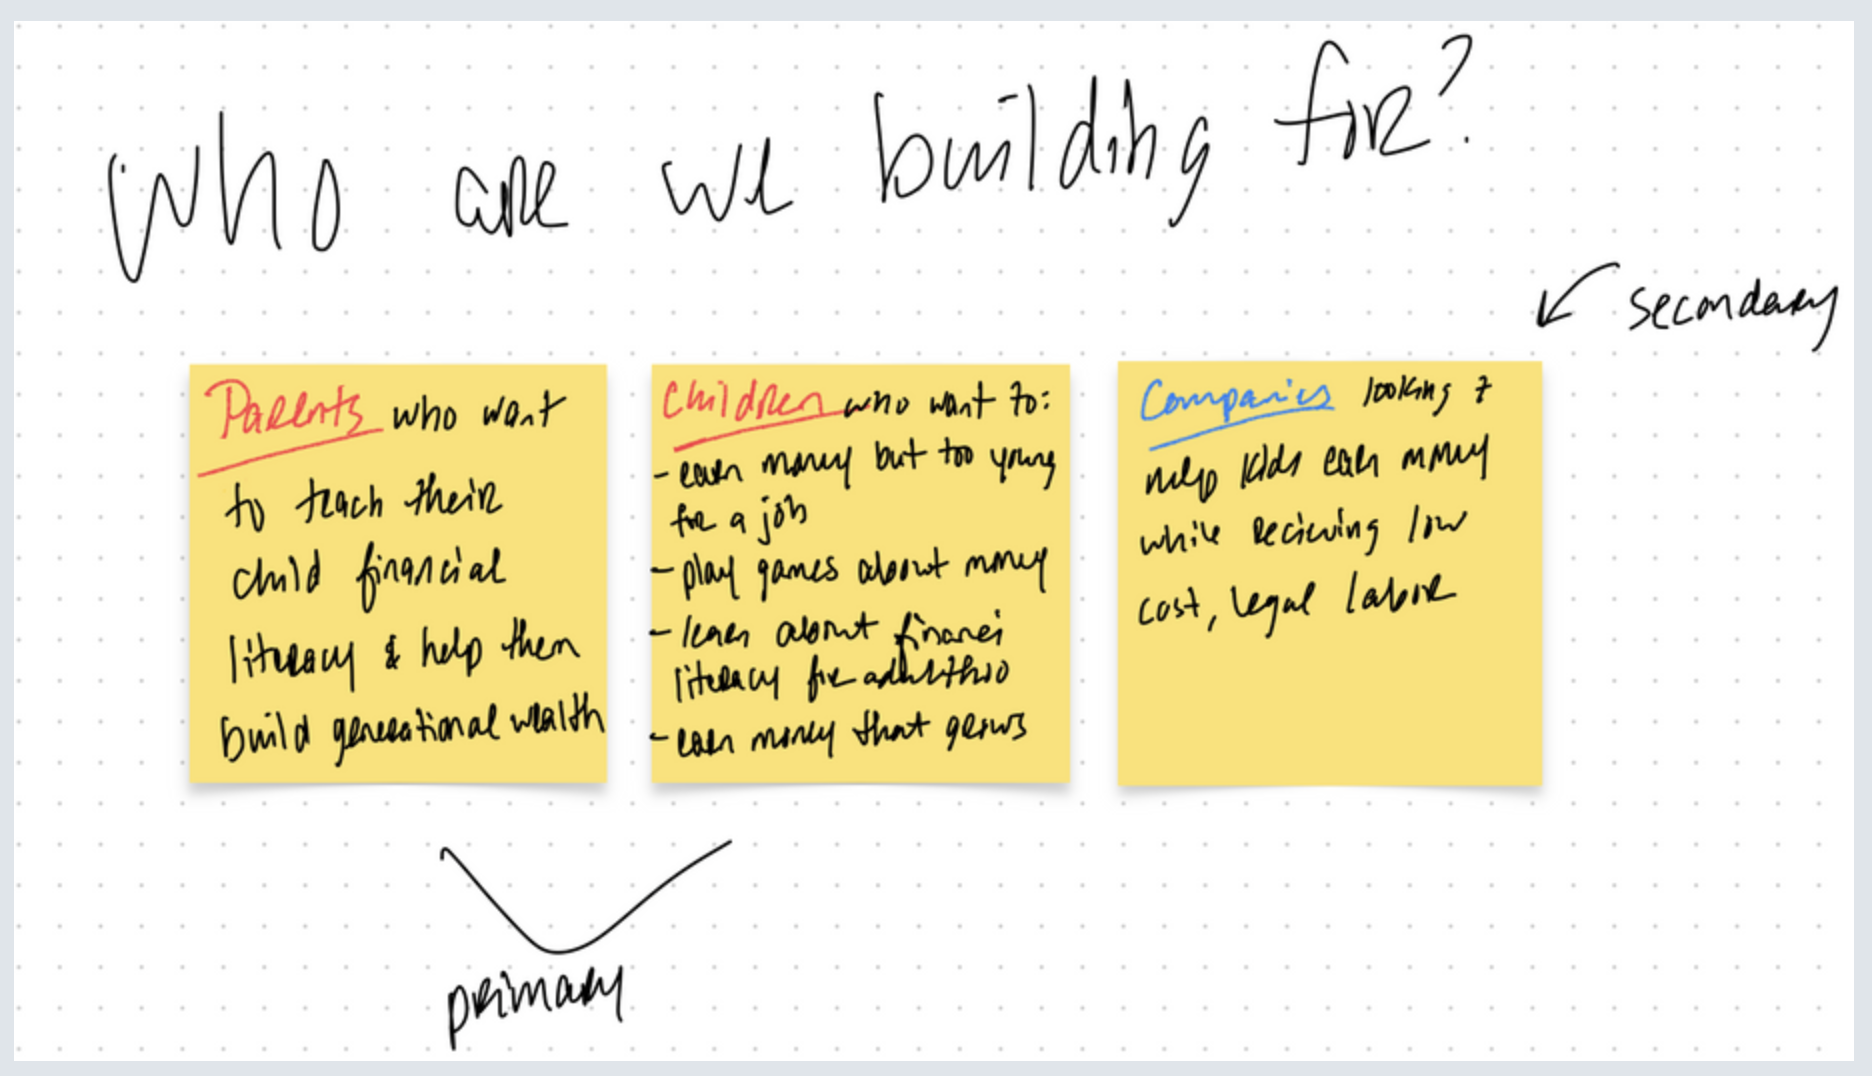 Who are we building for?
secondary
Parents who want
to teach their
child financial
literacy & help them
build generational wealth
Children who want to:
- earn money but too young
for a job
- play games about money
- learn about financi
literacy for adulthoo
- earn money that grows
Companies looking t
help kids earn money
while recieving low
cost, legal labor
primary